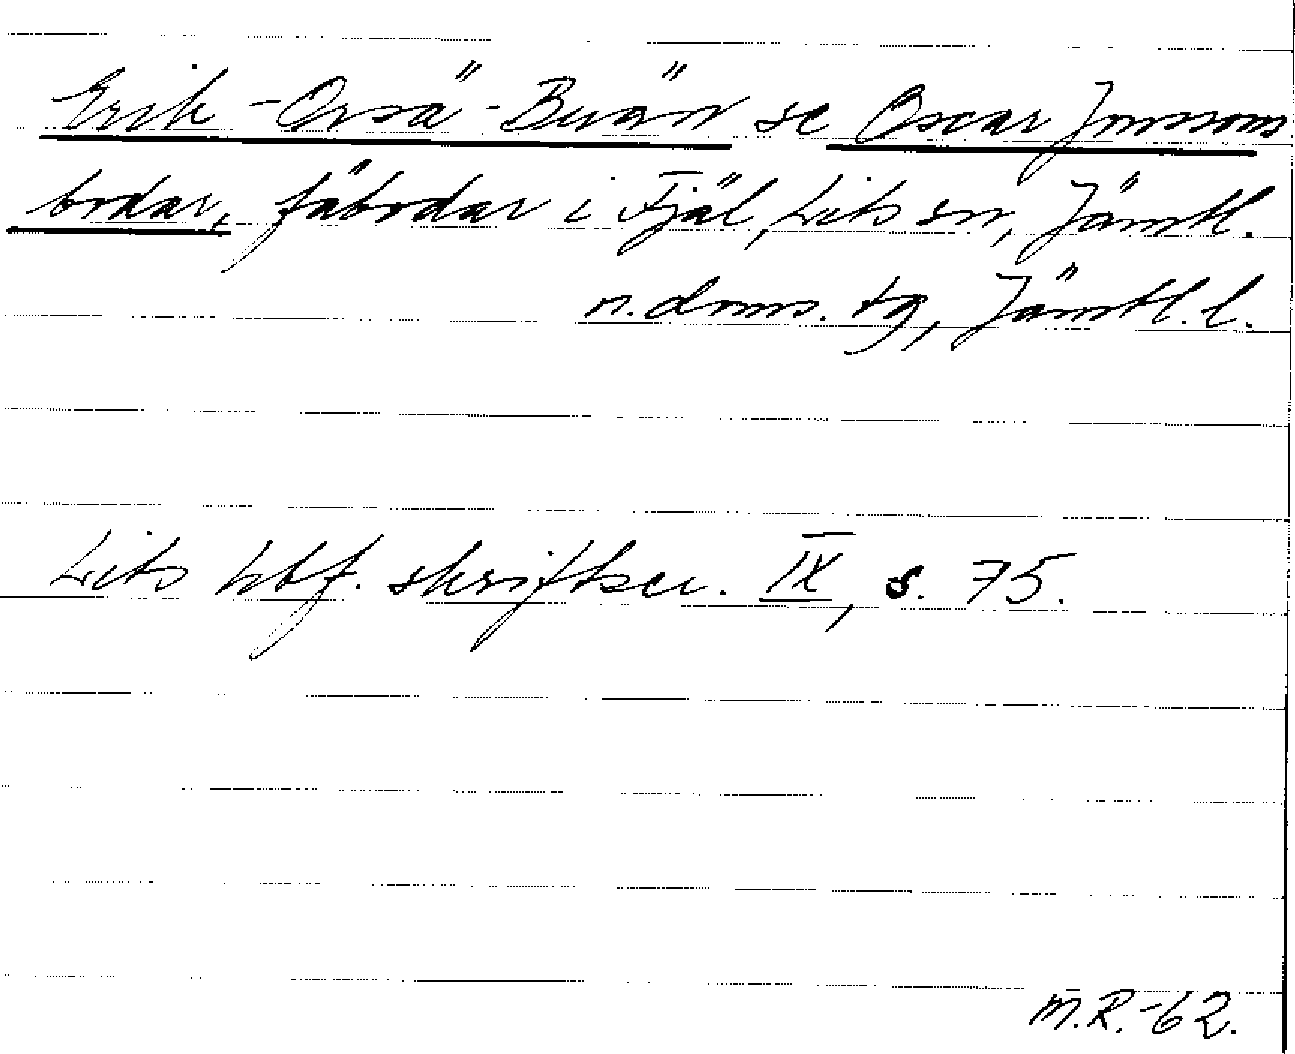 Erik-Orsä-Buän se Oscar Jonssons
bodar, fäbodar i Fjäl, Lits sn, Jämtl.
n. doms. tg, Jämtl. l.
Lits hbf. skriftser. IX, s. 75.
M.R.-62.